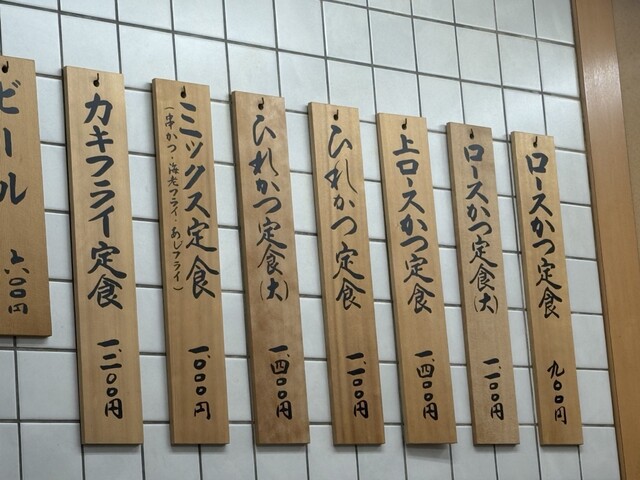 ロースかつ定食 九〇〇円
ロースかつ定食(大) 一、一〇〇円
上ロースかつ定食 一、四〇〇円
ひれかつ定食 一、一〇〇円
ひれかつ定食(大) 一、四〇〇円
ミックス定食 一、〇〇〇円
(串かつ・海老フライ・あじフライ)
カキフライ定食 一、一〇〇円
ビール 六〇〇円